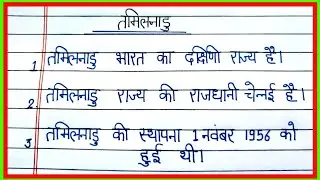 तमिलनाडु
1. तमिलनाडु भारत का दक्षिणी राज्य है।
2. तमिलनाडु राज्य की राजधानी चेन्नई है।
3 तमिलनाडु की स्थापना 1 नवंबर 1956 को
हुई थी।